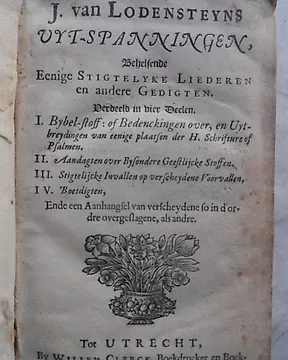 J. van LODENSTEYNS
UYT-SPANNINGEN,
Behelsende
Eenige STIGTELYKE LIEDEREN
en andere GEDIGTEN.
Verdeeld in vier Deelen.
I. Bybel-stoff: of Bedenckingen over, en Uyt-
breydingen van eenige plaatsen der H. Schrifture of
Psalmen.
II. Aandagten over Bysondere Geestlijcke Stoffen.
III. Stigtelijcke Invallen op verscheydene Voorvallen,
IV. Boetdigten,
Ende een Aanhangsel van verscheydene so in d'or-
dre overgeslagene, als andre.
Tot UTRECHT,
By WILLEM CLERCK, Boekdrucker en Boek-